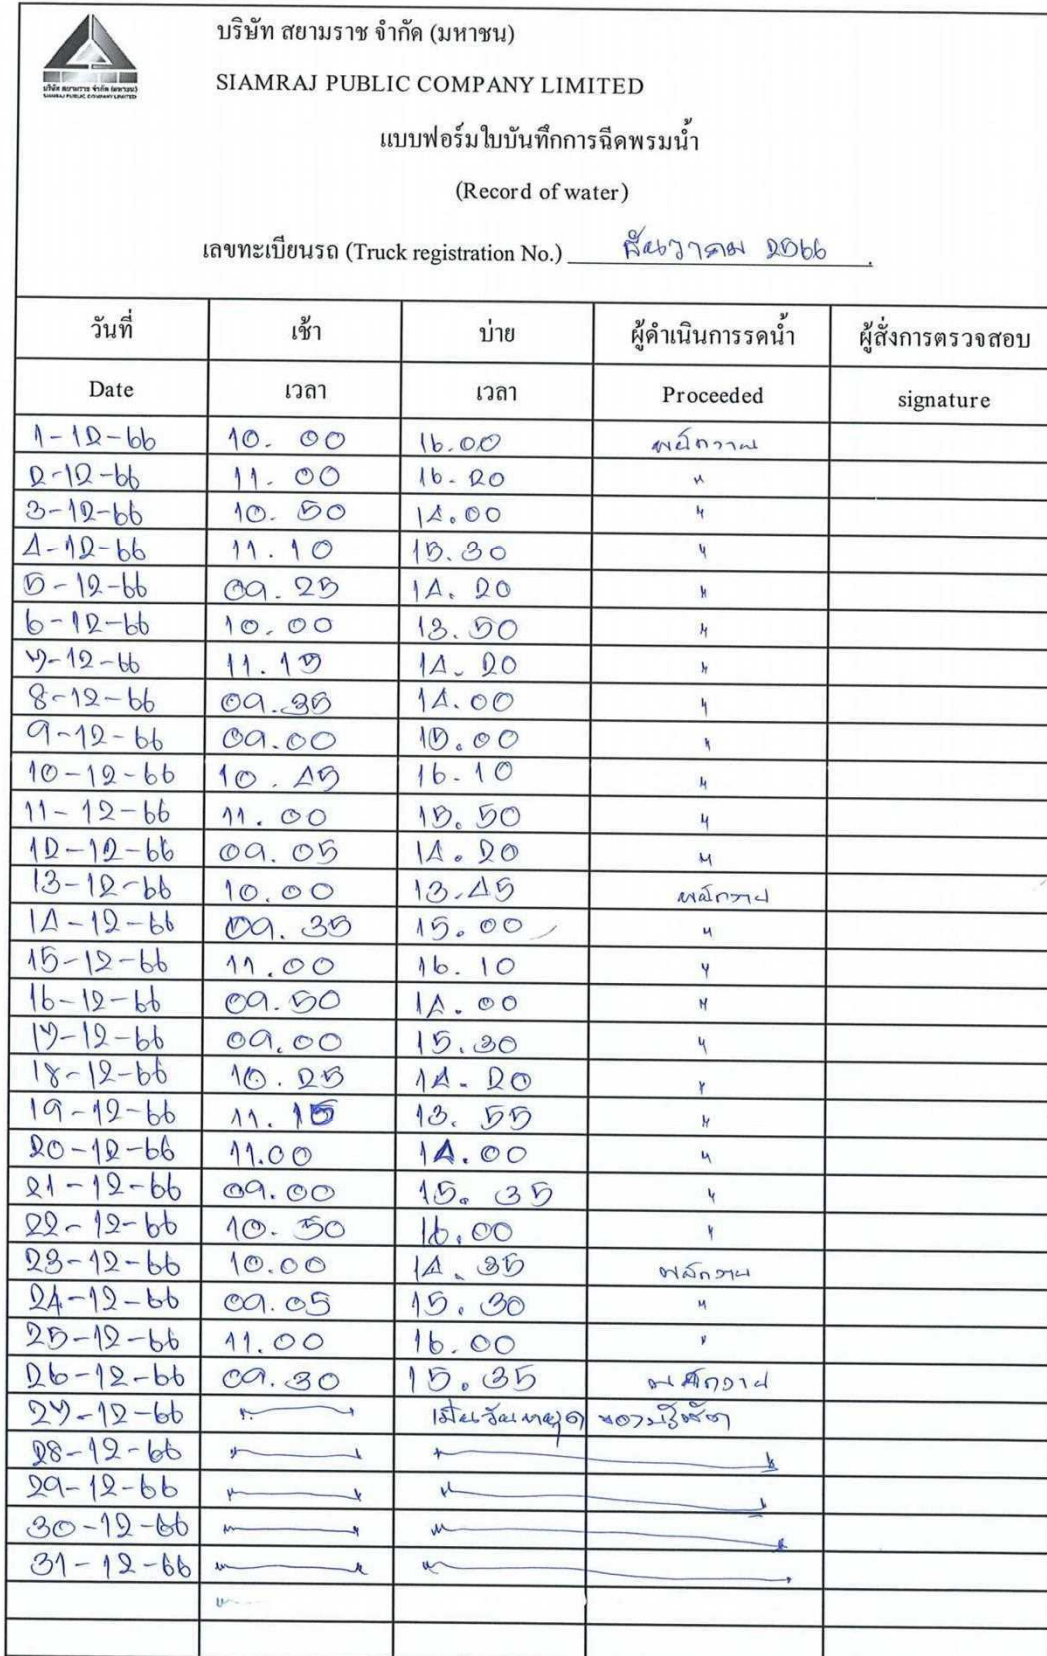 บริษัท สยามราช จำกัด (มหาชน)
SIAMRAJ PUBLIC COMPANY LIMITED
บริษัท สยามราช จำกัด (มหาชน)
SIAMRAJ PUBLIC COMPANY LIMITED
แบบฟอร์มใบบันทึกการฉีดพรมน้ำ
(Record of water)
เลขทะเบียนรถ (Truck registration No.) ธันวาคม 2566
วันที่ เช้า บ่าย ผู้ดำเนินการรดน้ำ ผู้สั่งการตรวจสอบ
Date เวลา เวลา Proceeded signature
1-12-66 10.00 16.00
2-12-66 11.00 16.20 "
3-12-66 10.50 14.00 "
4-12-66 11.10 15.30 "
5-12-66 09.25 14.20 "
6-12-66 10.00 13.50 "
7-12-66 11.15 14.20 "
8-12-66 09.35 14.00 "
9-12-66 09.00 15.00 "
10-12-66 10.45 16.10 "
11-12-66 11.00 15.50 "
12-12-66 09.05 14.20 "
13-12-66 10.00 13.45
14-12-66 09.35 15.00 "
15-12-66 11.00 16.10 "
16-12-66 09.50 14.00 "
17-12-66 09.00 15.30 "
18-12-66 10.25 14.20 "
19-12-66 11.15 13.55 "
20-12-66 11.00 14.00 "
21-12-66 09.00 15.35 "
22-12-66 10.50 16.00 "
23-12-66 10.00 14.35
24-12-66 09.05 15.30 "
25-12-66 11.00 16.00 "
26-12-66 09.30 15.35
27-12-66 เป็นวันหยุด ของบริษัท
28-12-66
29-12-66
30-12-66
31-12-66